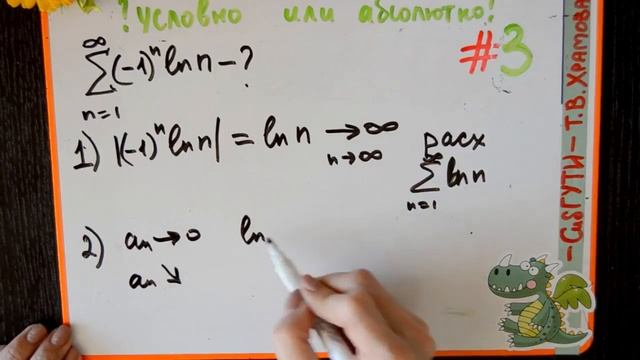 ? условно или абсолютно!
#3
∞
∑ (-1)ⁿ ln n - ?
n=1
1) |(-1)ⁿ ln n| = ln n → ∞
n→∞
расх
∞
∑ ln n
n=1
2) aₙ → 0 ln
aₙ ↘
СибГУТИ – Т.В. Храмова